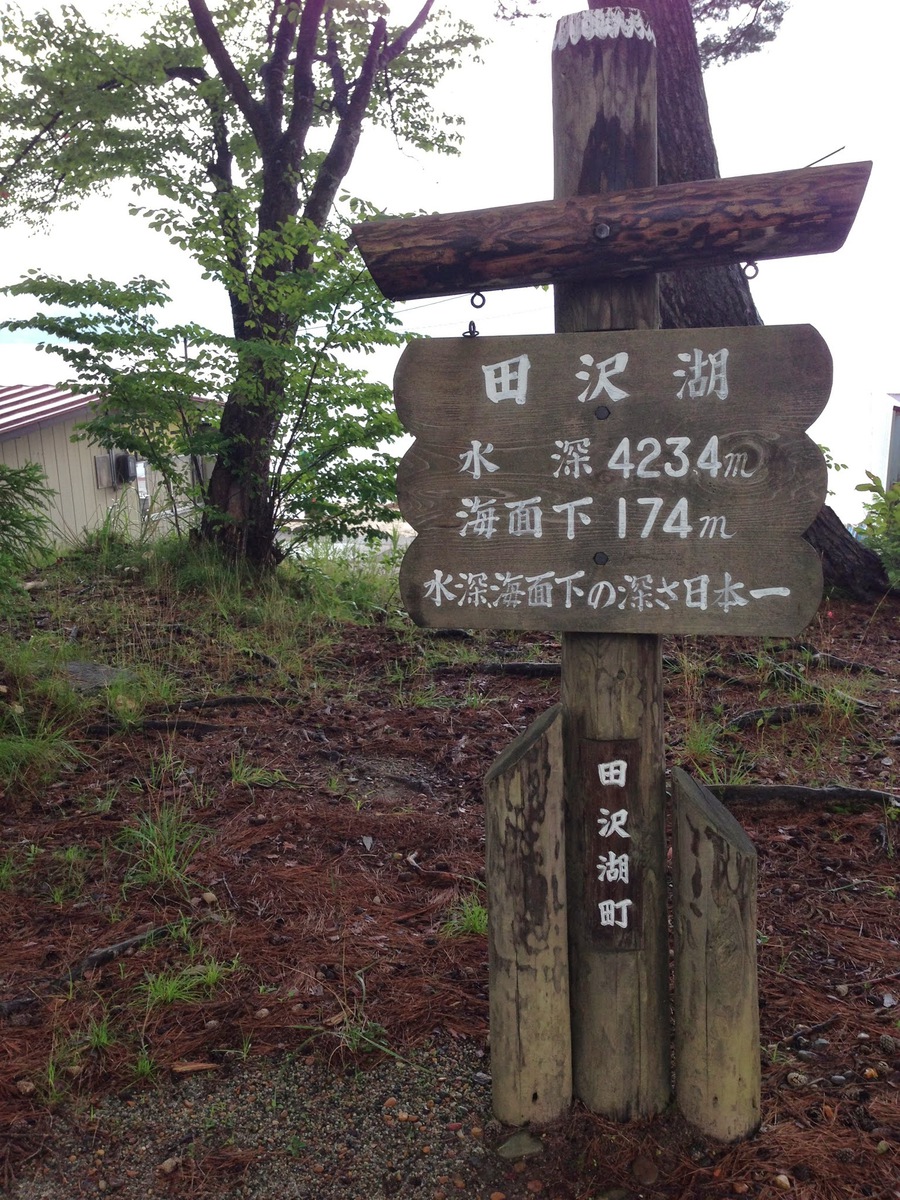 田沢湖
水深 423.4m
海面下 174m
水深海面下の深さ日本一
田沢湖町